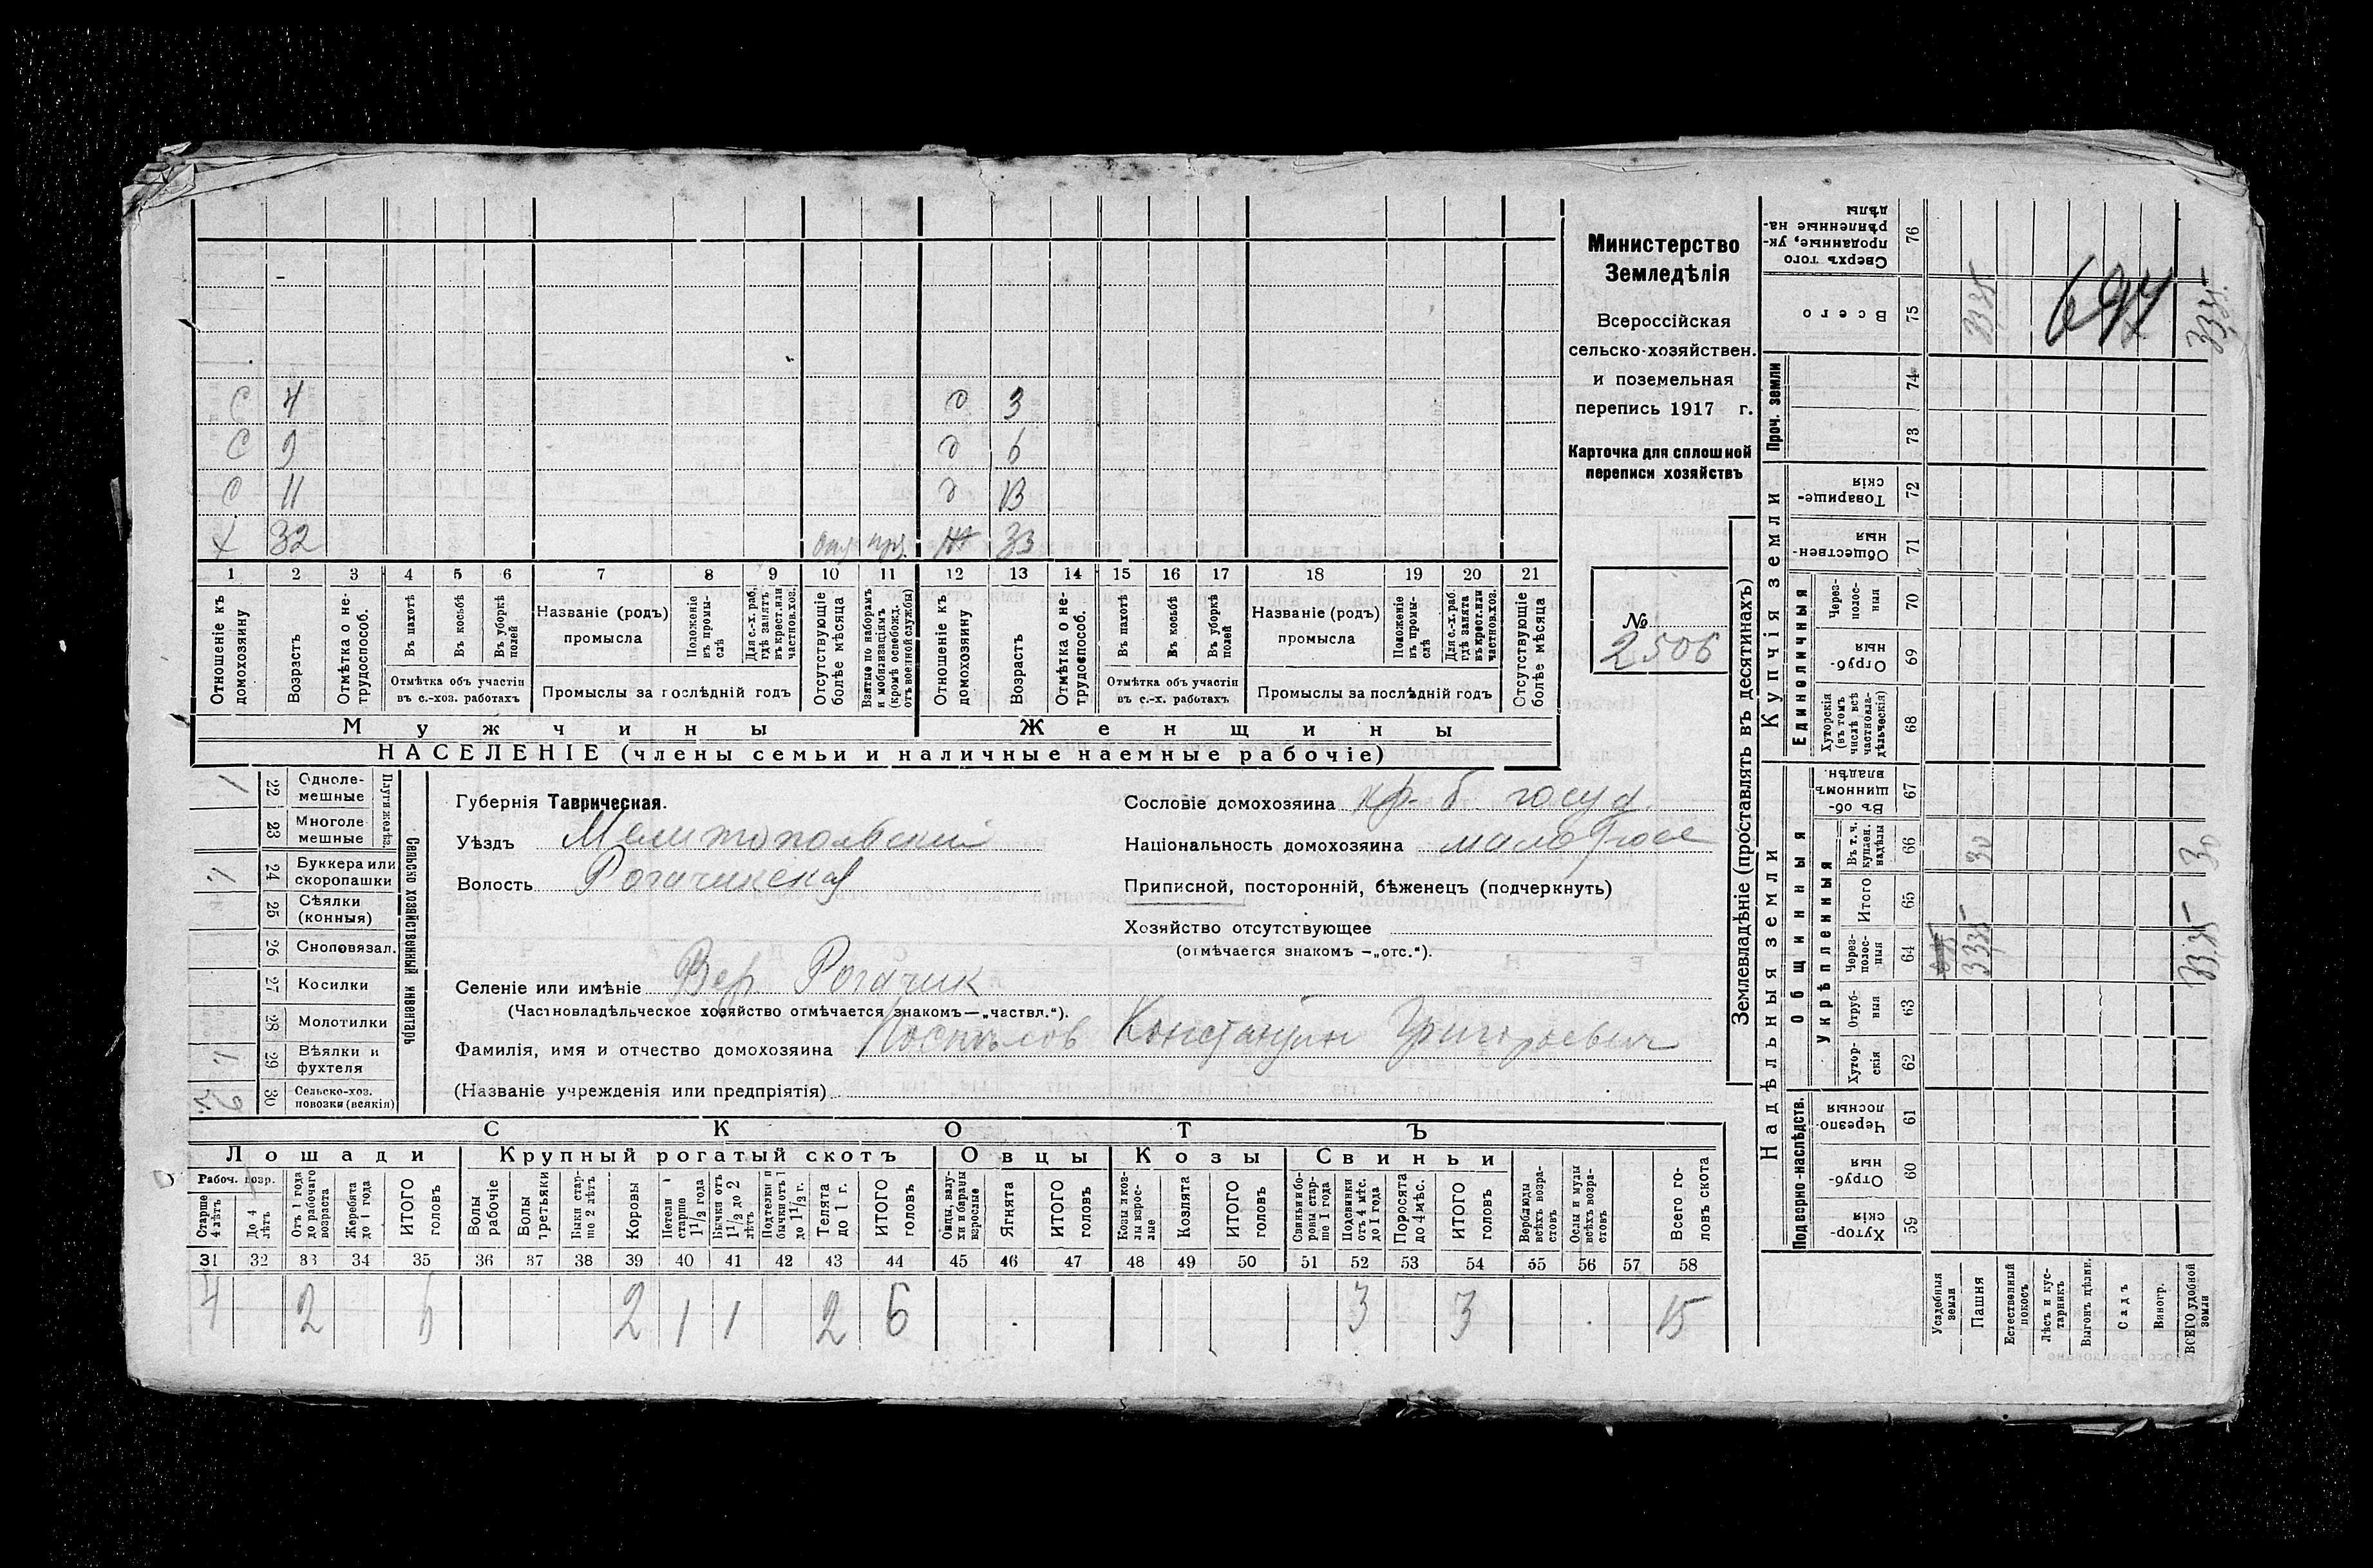 С 4 д 3
С 9 д 6
С 11 д 13
Х 32 отсу при. Ж 33
1 2 3 4 5 6 7 8 9 10 11 12 13 14 15 16 17 18 19 20 21
Отношеніе къ домохозяину
Возрастъ
Отмѣтка о нетрудоспособ.
Въ пахотѣ
Въ косьбѣ
Въ уборкѣ полей
Отмѣтка объ участіи
въ с.-хоз. работахъ
Названіе (родъ)
промысла
Положеніе въ промыслѣ
Для с.-х. раб. гдѣ занятъ въ крест. или частнов. хоз.
Промыслы за послѣдній годъ
Отсутствующіе болѣе мѣсяца
Взятые по наборамъ и мобилизаціямъ (кромѣ освобожд. отъ военной службы)
Отношеніе къ домохозяину
Возрастъ
Отмѣтка о нетрудоспособ.
Въ пахотѣ
Въ косьбѣ
Въ уборкѣ полей
Отмѣтка объ участіи
въ с.-х. работахъ
Названіе (родъ)
промысла
Положеніе въ промыслѣ
Для с.-х. раб. гдѣ занята въ крест. или частнов. хоз.
Промыслы за послѣдній годъ
Отсутствующіе болѣе мѣсяца
Мужчины Женщины
НАСЕЛЕНІЕ (члены семьи и наличные наемные рабочіе)
Министерство
Земледѣлія
Всероссійская
сельско-хозяйствен.
и поземельная
перепись 1917 г.
Карточка для сплошной
переписи хозяйствъ
№
2506
Сельско хозяйственный инвентарь
Плуги желѣз.
1 22 Однолемешные
23 Многолемешные
1 24 Буккера или скоропашки
25 Сѣялки (конныя)
26 Сноповязал.
27 Косилки
28 Молотилки
1 29 Вѣялки и фухтеля
30 Сельско-хоз. повозки (всякія)
Губернія Таврическая.
Уѣздъ Мелитопольскій
Волость Рогачикская
Сословіе домохозяина кр. б. госуд.
Національность домохозяина малоросс
Приписной, посторонній, бѣженецъ (подчеркнуть)
Хозяйство отсутствующее
(отмѣчается знакомъ —„отс.“).
Селеніе или имѣніе Вер. Рогачик
(Частновладѣльческое хозяйство отмѣчается знакомъ—„частвл.“).
Фамилія, имя и отчество домохозяина Поспѣлов Константин Григорьевич
(Названіе учрежденія или предпріятія)
СКОТЪ
Лошади Крупный рогатый скотъ Овцы Козы Свиньи
Рабоч. возр.
Старше 4 лѣтъ
До 4 лѣтъ
Отъ 1 года до рабочаго возраста
Жеребята до 1 года
ИТОГО головъ
Волы рабочіе
Волы третьяки
Быки старше 2 лѣтъ
Коровы
Нетели старше 1 1/2 года
Бычки отъ 1 1/2 до 2 лѣтъ
Подтелки и бычки отъ 1 до 1 1/2 г.
Телята до 1 г.
ИТОГО головъ
Овцы, валухи и бараны взрослые
Ягнята
ИТОГО головъ
Козы и козлы взрослые
Козлята
ИТОГО головъ
Свиньи и боровы старше 1 года
Подсвинки отъ 4 мѣс. до 1 года
Поросята до 4 мѣс.
ИТОГО головъ
Верблюды всѣхъ возрастовъ
Ослы и мулы всѣхъ возрастовъ
Всего головъ скота
31 32 33 34 35 36 37 38 39 40 41 42 43 44 45 46 47 48 49 50 51 52 53 54 55 56 57 58
4 2 6 2 1 1 2 6 3 3 15
Землевладѣніе (проставлять въ десятинахъ)
Купчія земли
Надѣльныя земли
Сверхъ того проданные, укрѣпленные надѣлы 76
Всего 75 3335 694 3335
Проч. земли
74
73
Товарищескія 72
Общественныя 71
Единоличныя
Черезполосныя 70
Отрубныя 69
Хуторскія (въ томъ числѣ всѣ частновладѣльческія) 68
Общинныя
Въ общинномъ владѣн. 67
Укрѣпленныя
Въ т. ч. куплен. надѣлы 66 30 30
Итого 65
Черезполосныя 64 3335 3335
Отрубныя 63
Хуторскія 62
Подворно-наслѣдств.
Черезполосныя 61
Отрубныя 60
Хуторскія 59
Усадебныя земли
Пашня
Естественный покосъ
Лѣсъ и кустарникъ
Выгонъ цѣлин.
Садъ
Виногр.
ВСЕГО удобной земли